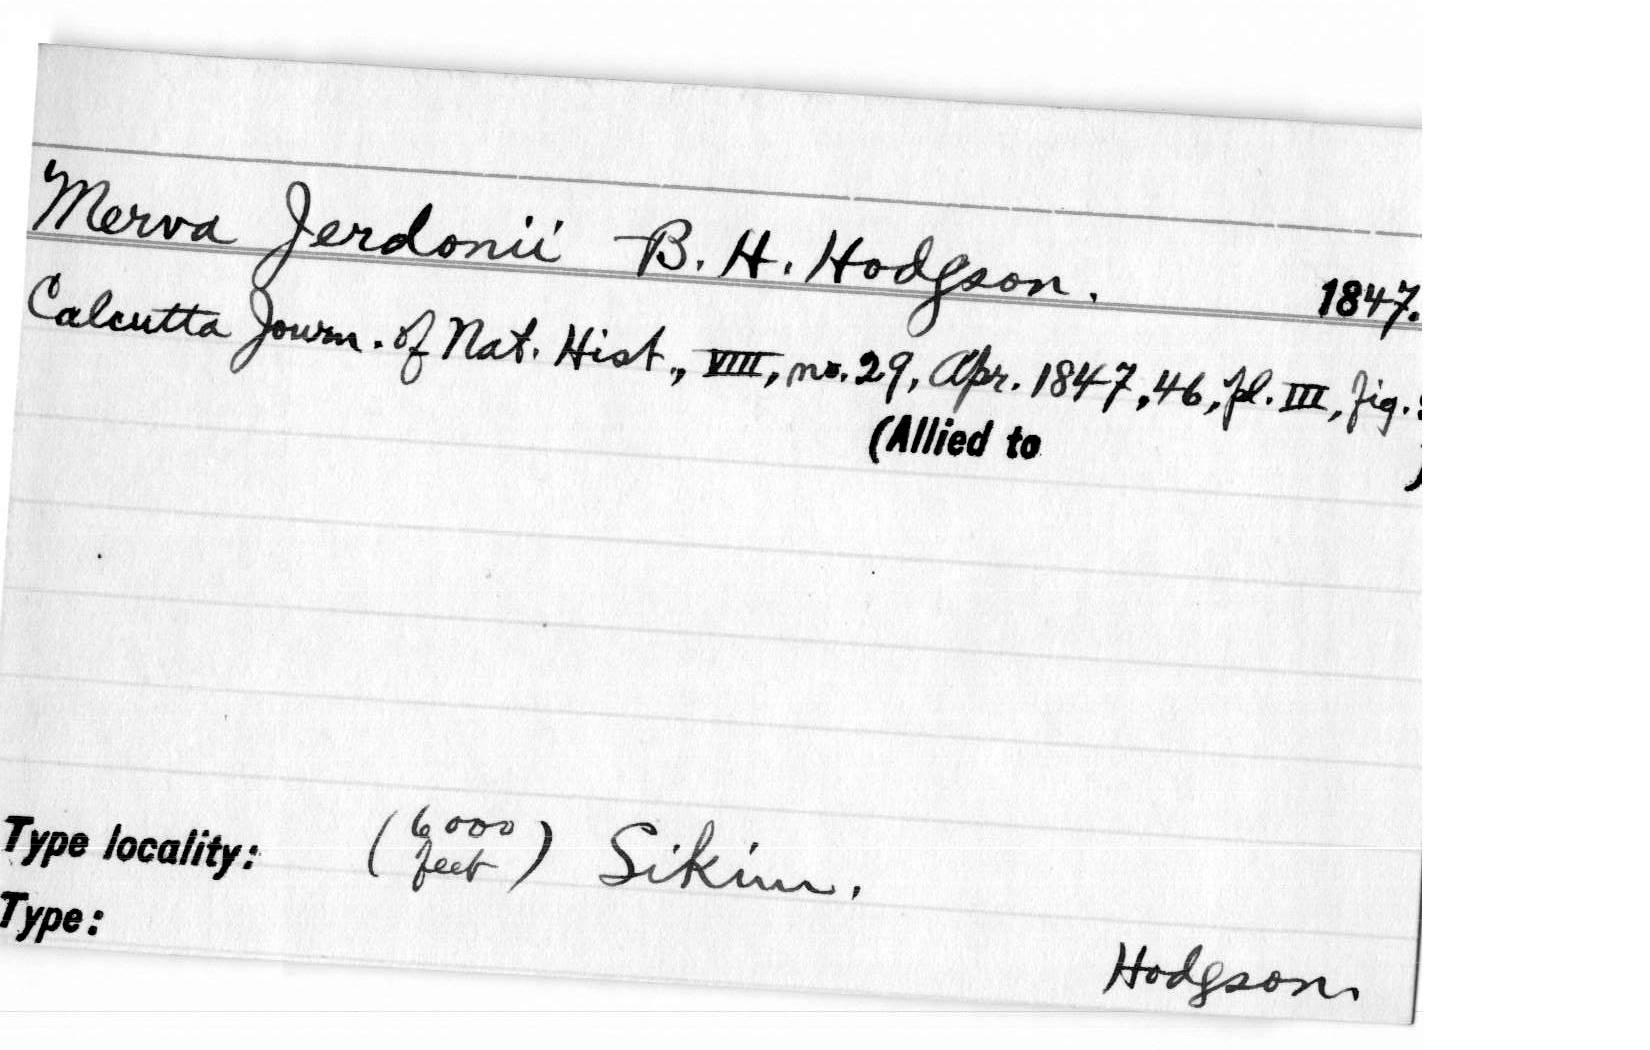 Merva Jerdonii B. H. Hodgson. 1847.
Calcutta Journ. of Nat. Hist., VIII, no. 29, Apr. 1847, 46, pl. III, fig.
(Allied to )
Type locality: (6000 feet) Sikim.
Type:
Hodgson.